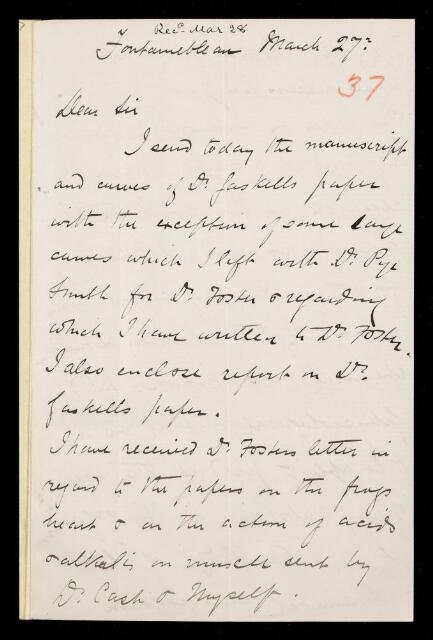 Recd. Mar 28
Fontainebleau March 27.
37
Dear Sir
I send today the manuscript
and curves of Dr. Gaskells paper
with the exception of some large
curves which I left with Dr. Pye
Smith for Dr. Foster & regarding
which I have written to Dr. Foster.
I also enclose report on Dr.
Gaskells paper.
I have received Dr. Fosters letter in
regard to the papers on the frogs
heart & on the action of acids
& alkalis on muscle sent by
Dr. Cash & Myself.